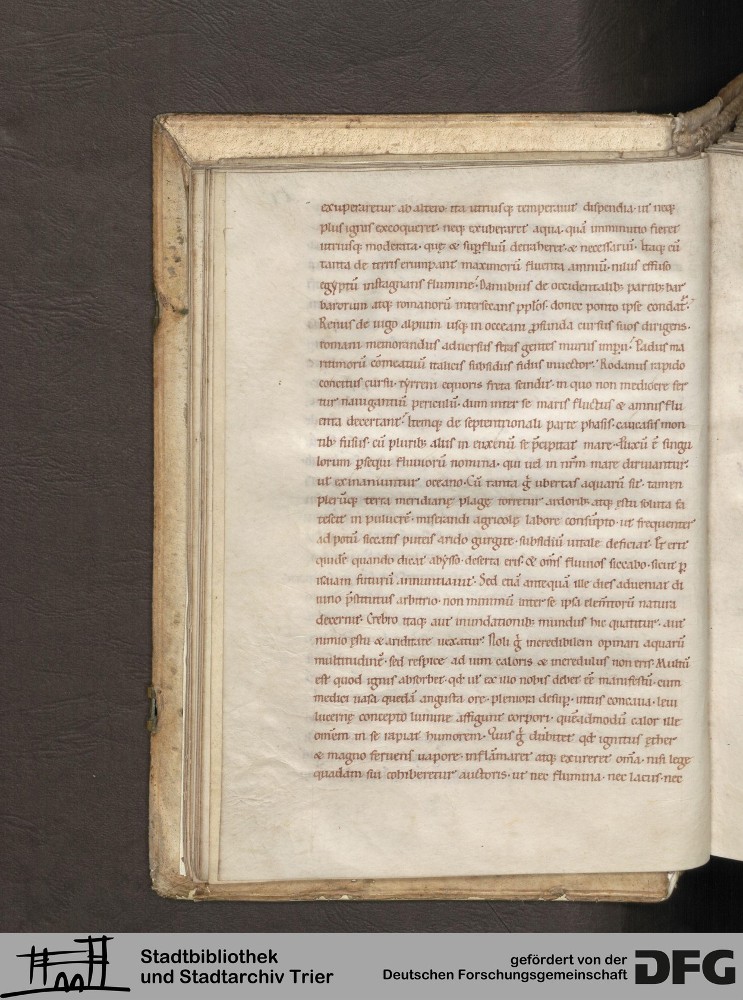 exuperaretur ab altero· ita utriusq; temperauit dispendia· ut neq;
plus ignis excoqueret· neq; exuberaret aqua· quā imminutio fieret
utriusq; moderata· quę & suꝑfluū detraheret· & necessariū· Itaq; cū
tanta de terris erumpant maximorū fluenta amniū· nilus effuso
egyptū instagnans flumine· Danubius de occidentalib; partib; bar
barorum atq; romanorū intersecans pplōs· donec ponto ipse condatᷣ·
Renus de iugo alpium usq; in occeani ꝓfunda cursus suos dirigens·
romani memorandus aduersus feras gentes murus imperii· Padus ma
ritimorū cōmeatuū italicis subsidiis fidus inuector· Rodanus rapido
concitus cursu· tyrreni equoris freta scindit· in quo non mediocre fer
tur nauigantiū periculū· dum inter se maris fluctus & amnis flu
enta decertant· Itemq; de septentrionali parte phasis· caucasis mon
tib; fusus· cū plurib; aliis in euxenū se p̄cipitat mare· Lōgū ē singu
lorum ꝑsequi fluuiorū nomina· qui uel in nr̄m mare diriuantur·
ul' exinaniuntur oceano· Cū tanta ḡ ubertas aquarū sit· tamen
plerūq; terra meridianę plagę torretur ardorib; atq; ęstu soluta fa
tescit in puluerē· miserandi agricolę labore consūpto· ut frequenter
ad potū siccatis puteis arido gurgite· subsidiū uitale deficiat· Et erit
quidē quando dicat abysso· deserta eris· & om̄s fluuios siccabo· sicut ꝑ
isaiam futurū annuntiauit· Sed etiā antequā ille dies adueniat di
uino p̄stitutus arbitrio· non minimū inter se ipsa elem̄torū natura
decernit· Crebro itaq; aut inundationib; mundus hic quatitur· aut
nimio ęstu & ariditate uexatur· Noli ḡ incredibilem opinari aquarū
multitudinē· sed respice ad uim caloris & incredulus non eris· Multū
est quod ignis absorbet· qd̄ ul' ex illo nobis debet eē manifestū· cum
medici uasa quędā angusta ore· pleniora desup· intus concaua· leui
lucernę concepto lumine affigunt corpori· quēadmodū calor ille
omēm in se rapiat humorem· Quis ḡ dubitet qd̄ ignitus ęther
& magno feruens uapore· inflāmaret atq; exureret om̄a· nisi lege
quadam sui cohiberetur auctoris· ut nec flumina· nec lacus· nec
Stadtbibliothek
und Stadtarchiv Trier
gefördert von der
Deutschen Forschungsgemeinschaft
DFG